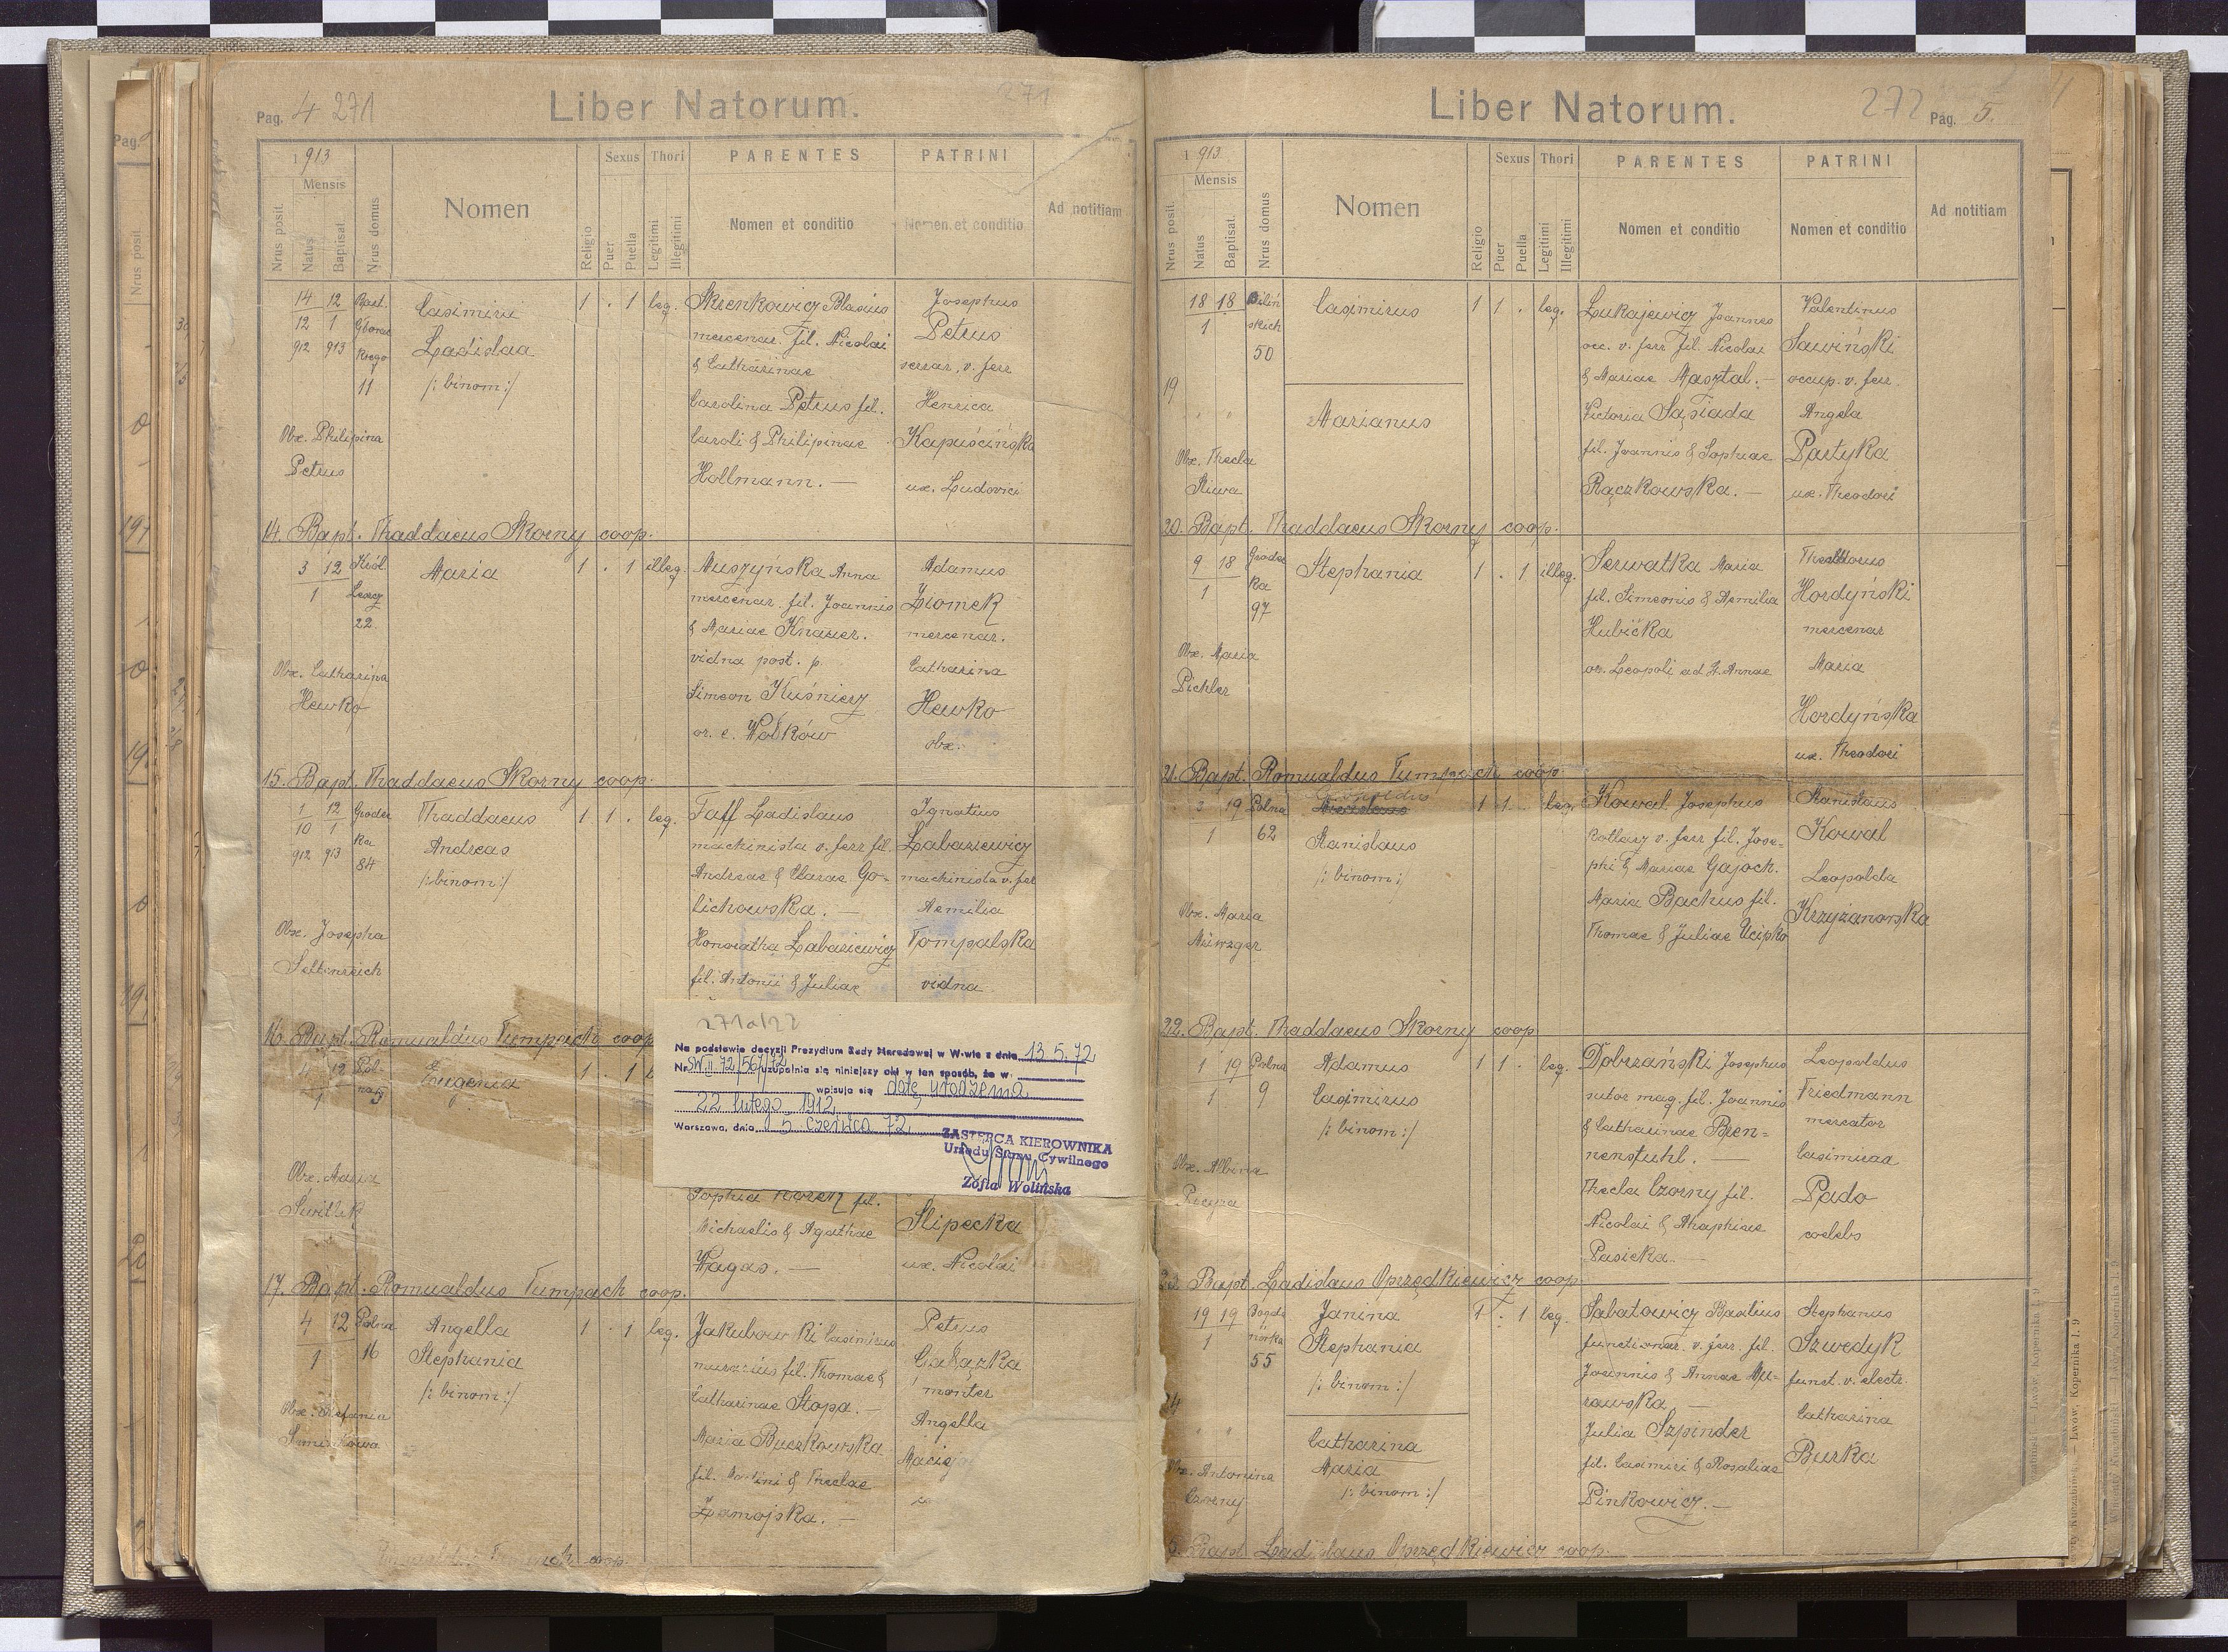 Pag. 4 271
Liber Natorum.
271
1913
Mensis
Nrus posit.
Natus
Baptisat.
Nrus domus
Nomen
Religio
Sexus
Puer
Puella
Thori
Legitimi
Illegitimi
PARENTES
Nomen et conditio
PATRINI
Nomen et conditio
Ad notitiam
14 12
12 1
912 913
11
Casimira
Ladislaa
/: binom :/
1 . 1 leg.
Skrenkowicz Blasius
mercenar. fil. Nicolai
& Catharinae
Carolina Petrus fil.
Caroli & Philipinae
Hollmann. —
Josephus
Petrus
serrar. v. ferr
Henrica
Kapuścińska
ux. Ludovici
Obx. Philipina
Petrus
14. Bapt. Thaddaeus Skorny coop.
3 12 Król
1 Leszcz
22
Maria
1 . 1 illeg.
Muszynska Anna
mercenar. fil. Joannis
& Mariae Knauer.
vidna post. p.
Simeon Kuśnierz
or. e. Wołków
Adamus
Ziomek
mercenar.
Catharina
Hewko
obx.
Obx. Catharina
Hewko
15. Bapt. Thaddaeus Skorny coop.
1 12 Grodec
10 1 ka
912 913 84
Thaddaeus
Andreas
/: binom :/
1 1 . leg.
Taff Ladislaus
machinista v. ferr fil.
Andreae & Clarae Go=
lichowska. —
Honoratha Labasiewicz
fil. Antonii & Juliae
Ignatius
Labasiewicz
machinista v. fer
Aemilia
Tompalska
vidna
Obx. Josepha
Seltenreich
16. Bapt. Romualdus Tumpach coop
4 12 Pol-
1 na 5
Eugenia
1 . 1
271a/22
Na podstawie decyzji Prezydium Rady Narodowej w W-wie z dnia 13.5.72
Nr SW.II 72/567/72 uzupełnia się niniejszy akt w ten sposób, że w
wpisuje się datę urodzenia
22 lutego 1912
Warszawa, dnia 15 czerwca 72
ZASTĘPCA KIEROWNIKA
Urzędu Stanu Cywilnego
Zofia Wolińska
Sophia Korek fil.
Michaelis & Agathae
Wagas. —
Slipecka
ux. Nicolai
Obx. Maria
17. Bapt. Romualdus Tumpach coop.
4 12 Polna
1 16
Angella
Stephania
/: binom :/
1 . 1 leg.
Jakubowski Casimirus
murarius fil. Thomae &
Catharinae Stopa. —
Maria Buczkowska
fil. Martini & Theclae
Zamojska. —
Petrus
Gałązka
monter
Angella
Obx. Stefania
coop.
272 Pag. 5.
Liber Natorum.
1913
Mensis
Nrus posit.
Natus
Baptisat.
Nrus domus
Nomen
Religio
Sexus
Puer
Puella
Thori
Legitimi
Illegitimi
PARENTES
Nomen et conditio
PATRINI
Nomen et conditio
Ad notitiam
18 18 Biliń
1 skich
50
19
Casimirus
Marianus
1 1 . leg.
Lukajewicz Joannes
occ. v. ferr fil. Nicolai
& Mariae Masztal. —
Victoria Sąsiada
fil. Joannis & Sophiae
Rączkowska. —
Valentinus
Sawiński
occup. v. ferr.
Angela
Partyka
ux. Theodori
Obx. Thecla
Sliwa
20. Bapt. Thaddaeus Skorny coop.
9 18 Grodec
1 ka
97
Stephania
1 . 1 illeg.
Serwatka Maria
fil. Simeonis & Aemilia
Hubicka
or. Leopoli ad S. Annae
Theodorus
Hordyński
mercenar
Maria
Hordyńska
ux. Theodori
Obx. Maria
Pichler
21. Bapt. Romualdus Tumpach coop
3 19 Polna
1 62
Leopoldus
Stanislaus
/: binom :/
1 1 . leg.
Kowal Josephus
kotlarz v. ferr fil. Jose=
phi & Mariae Gajoch.
Maria Bachus fil.
Thomae & Juliae Ucipko
Stanislaus
Kowal
Leopolda
Krzyżanowska
Obx. Maria
22. Bapt. Thaddaeus Skorny coop
1 19 Polna
1 9
Adamus
Casimirus
/: binom :/
1 1 . leg.
Dobrzański Josephus
sutor mag. fil. Joannis
& Catharinae Bren=
nenstuhl. —
Thecla Czorny fil.
Nicolai & Anaphiae
Pasieka. —
Leopoldus
Friedmann
mercator
Casimiraa
Pado
coelebs
Obx. Albina
23. Bapt. Ladislaus Oprzędkiewicz coop.
19 19 Bogda
1 nówka
55
24
Janina
Stephania
/: binom :/
Catharina
Maria
/: binom :/
1 . 1 leg.
Sabatowicz Basilius
functionar. v. ferr. fil.
Joannis & Annae Mu=
rawska —
Julia Szpinder
fil. Casimiri & Rosaliae
Pinkowicz. —
Stephanus
Szwedyk
funct. v. electr.
Catharina
Burka
Obx. Antonina
Czorny
Bapt. Ladislaus Oprzędkiewicz coop.